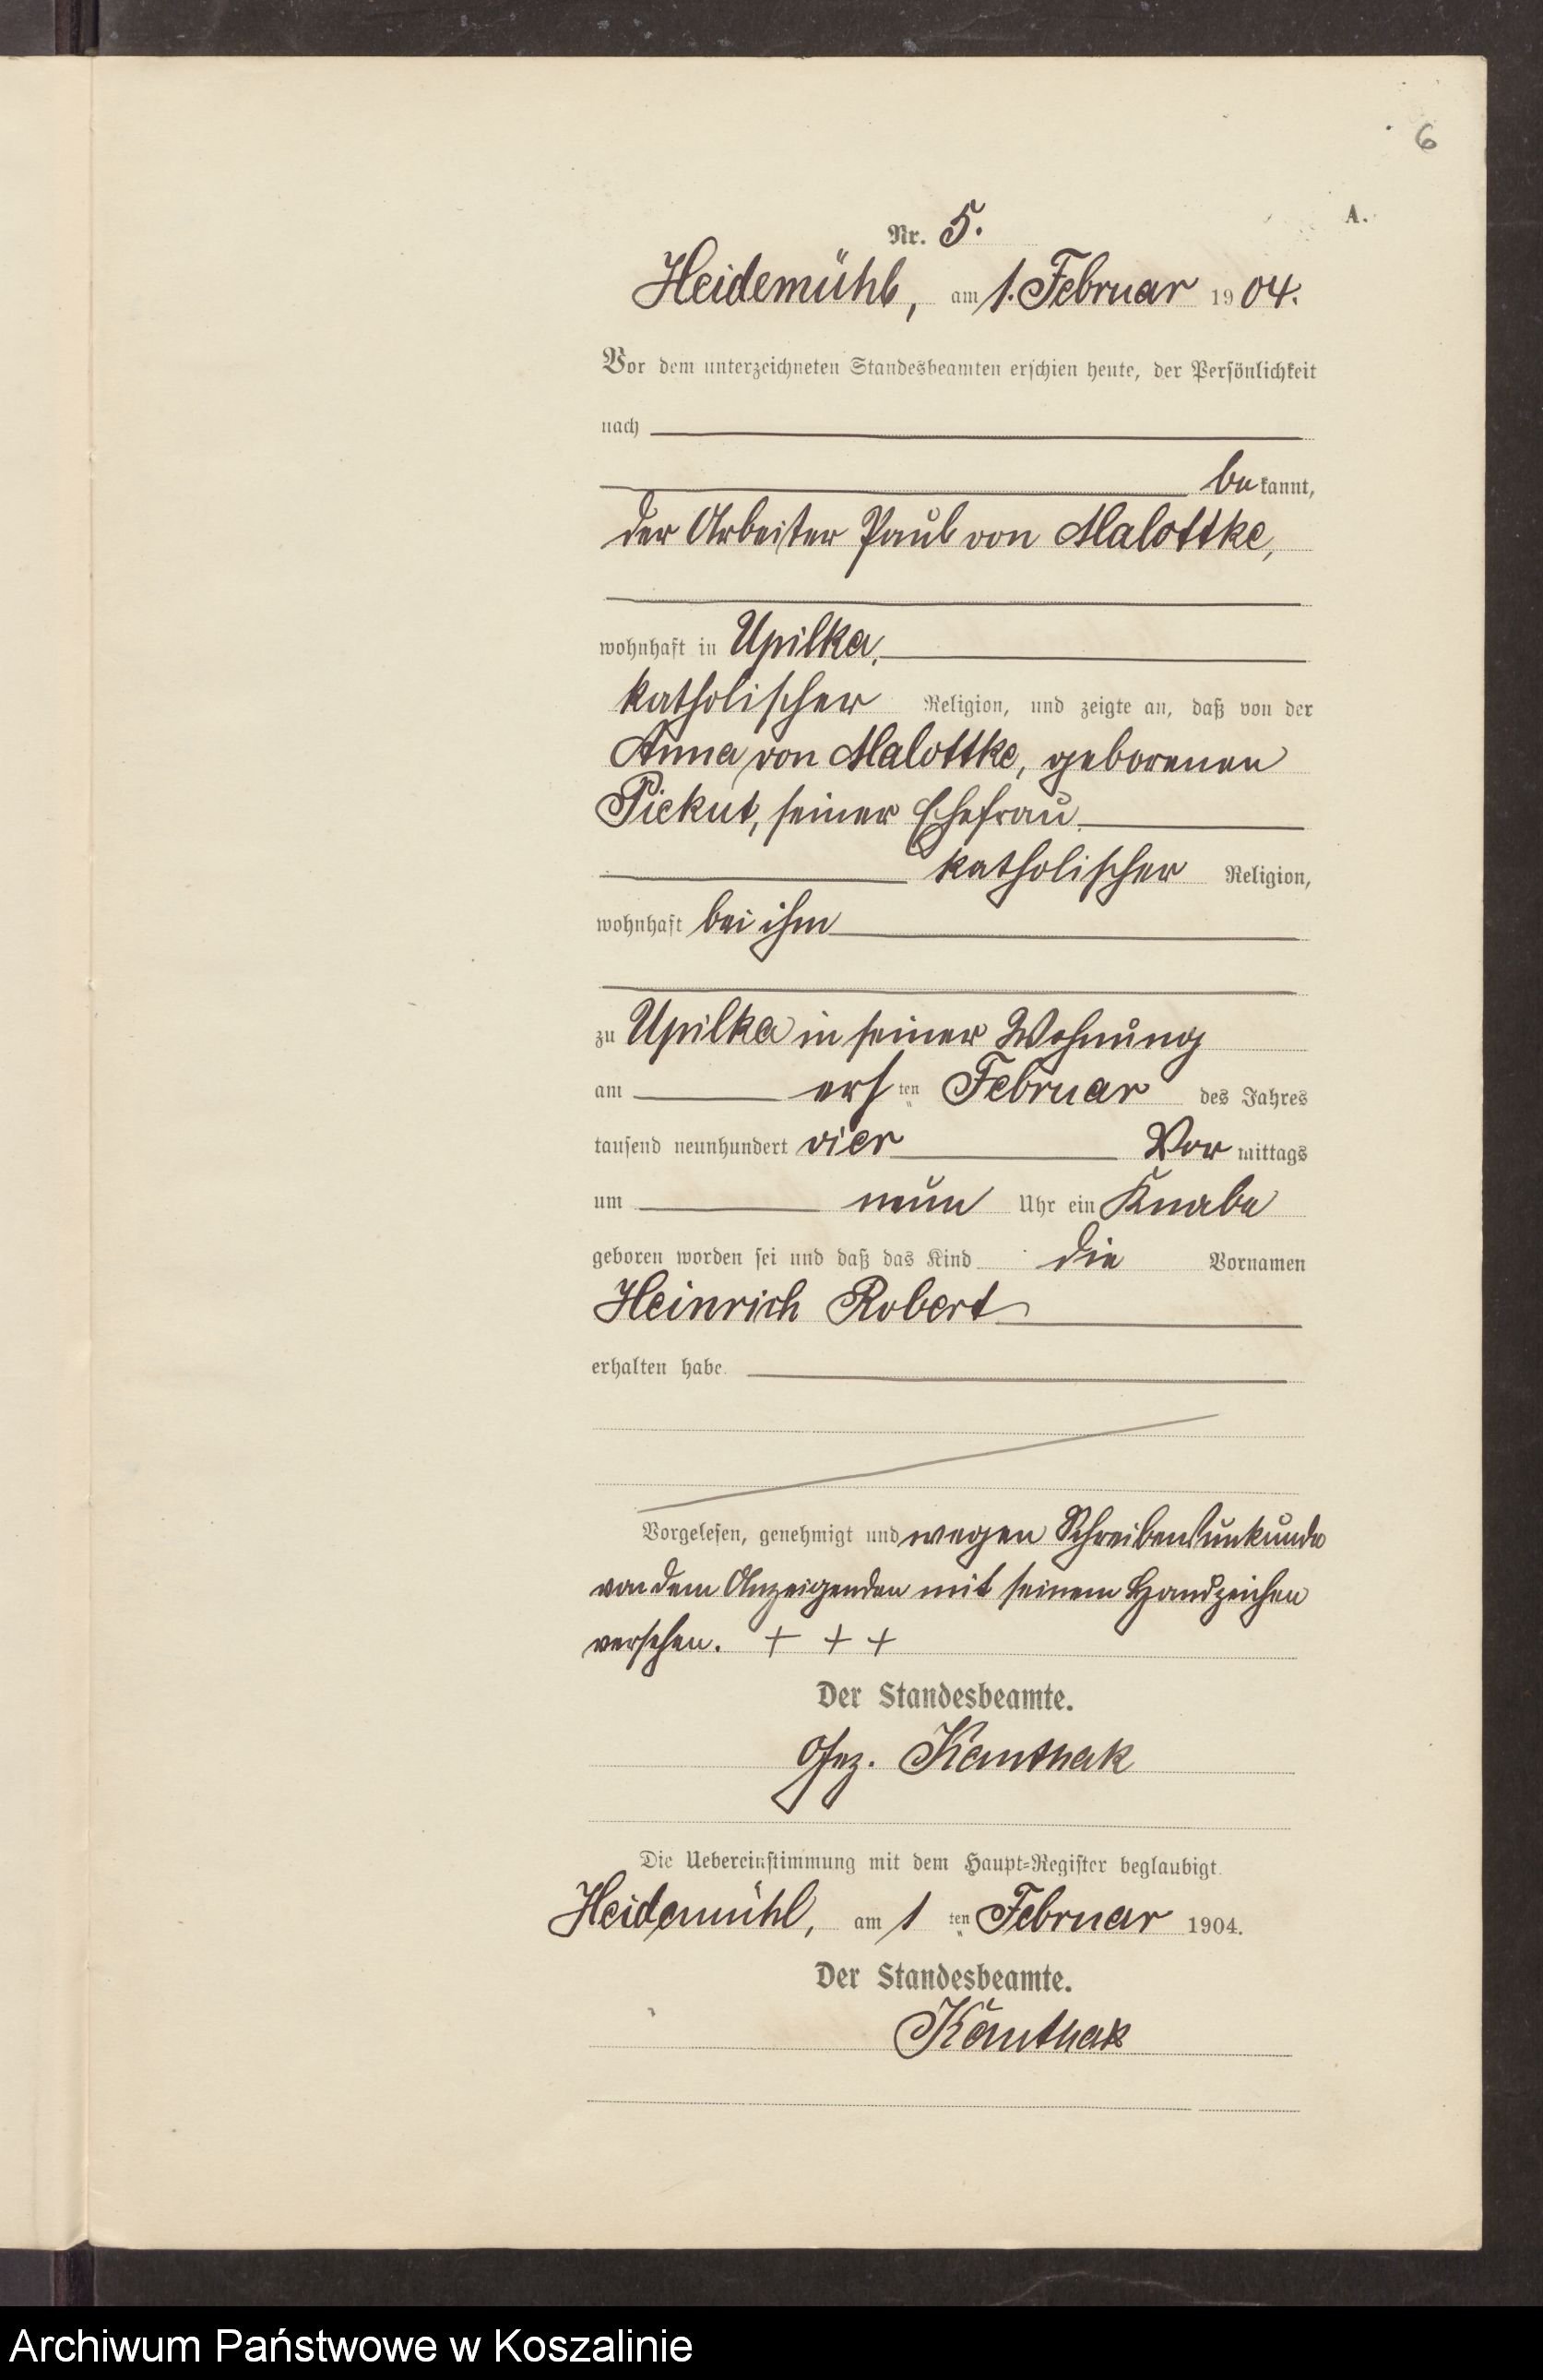 6
A.
Nr. 5.
Heidemühl, am 1. Februar 1904.
Vor dem unterzeichneten Standesbeamten erschien heute, der Persönlichkeit
nach
bekannt,
der Arbeiter Paul von Malottke,
wohnhaft in Upilka,
katholischer Religion, und zeigte an, daß von der
Anna von Malottke, geborenen
Piekut, seiner Ehefrau
katholischer Religion,
wohnhaft bei ihm
zu Upilka in seiner Wohnung
am ersten Februar des Jahres
tausend neunhundert vier Vormittags
um neun Uhr ein Knabe
geboren worden sei und daß das Kind die Vornamen
Heinrich Robert
erhalten habe.
Vorgelesen, genehmigt und wegen Schreibensunkunde
von dem Anzeigenden mit seinem Handzeichen
versehen. + + +
Der Standesbeamte.
Gez.
Die Uebereinstimmung mit dem Haupt-Register beglaubigt
Heidemühl, am 1ten Februar 1904.
Der Standesbeamte.
Archiwum Państwowe w Koszalinie